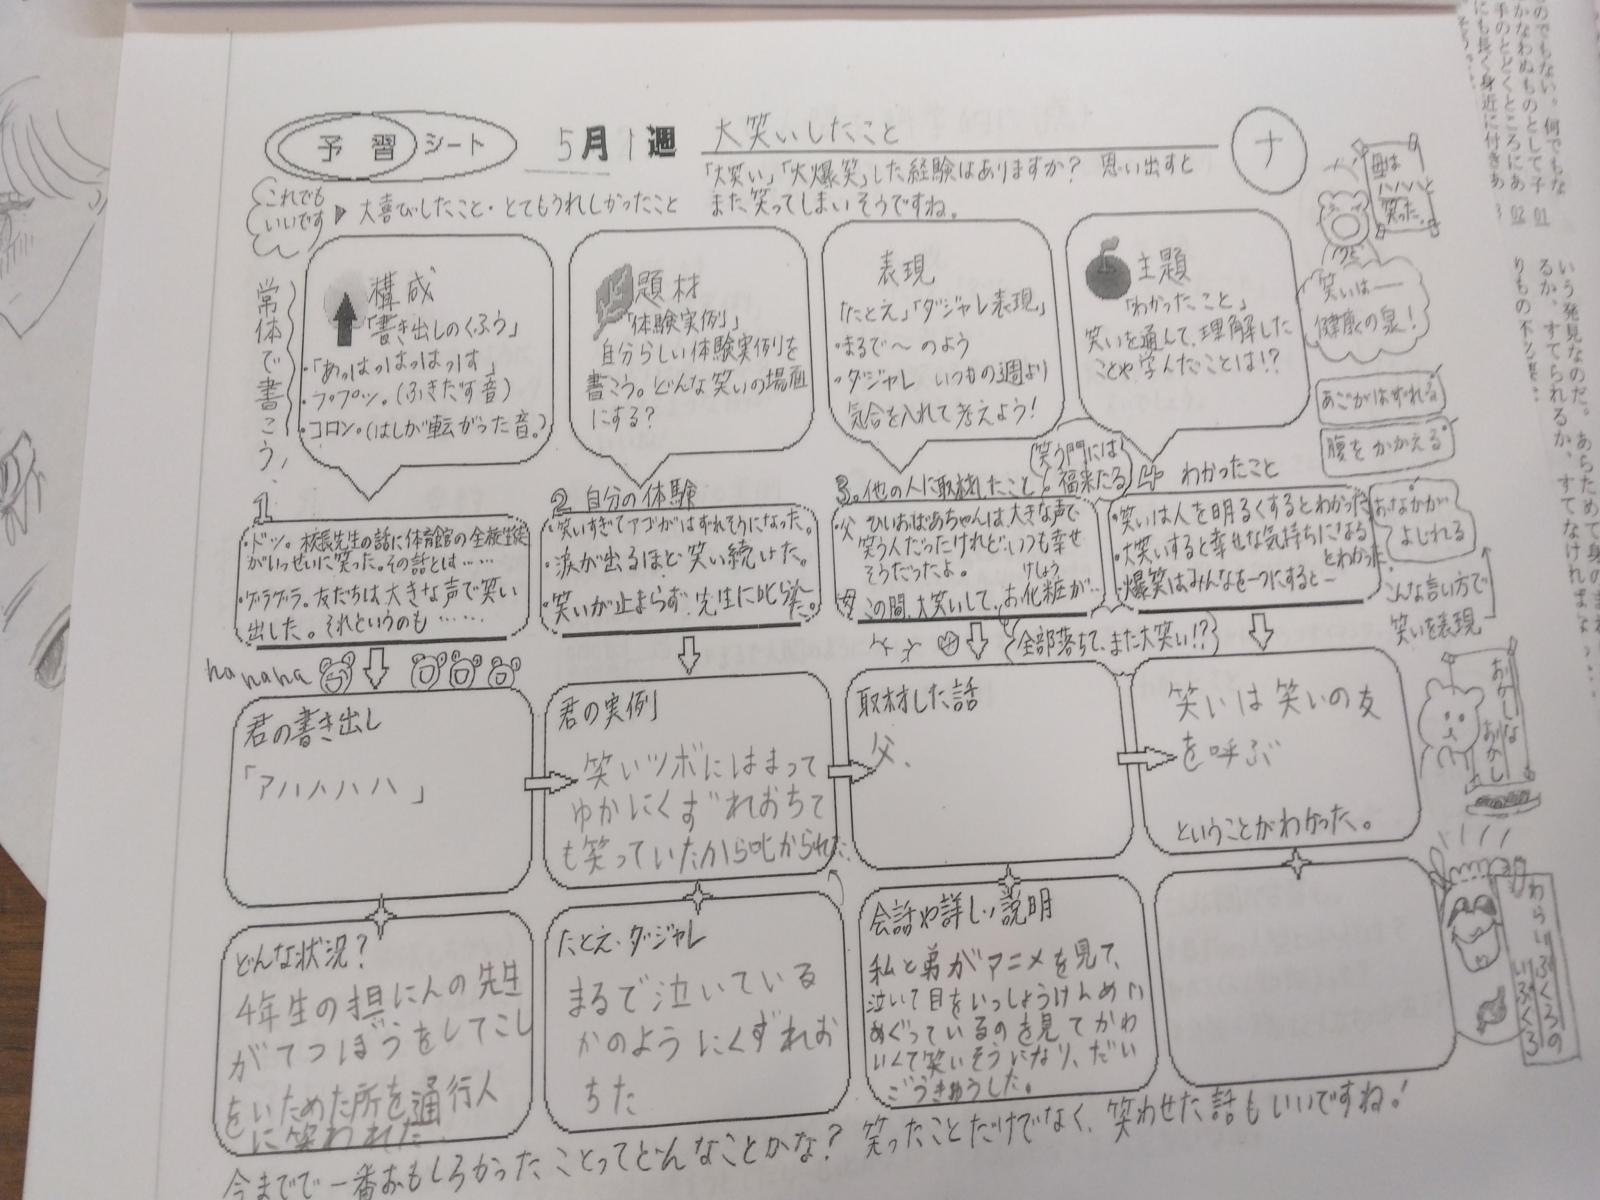 予習シート 5月1週 大笑いしたこと ナ
「大笑い」「大爆笑」した経験はありますか？ 思い出すと
また笑ってしまいそうですね。
これでも
いいです
▶大喜びしたこと・とてもうれしかったこと
常体で書こう、
構成
「書き出しのくふう」
・「あっはっはっはっはす」
・プププッ。(ふきだす音)
・コロン。(はしが転がった音。)
題材
「体験実例」
自分らしい体験実例を
書こう。どんな笑いの場面
にする？
表現
「たとえ」「ダジャレ表現」
・まるで〜のよう
・ダジャレ いつもの週より
気合を入れて考えよう！
主題
「わかったこと」
笑いを通して、理解した
ことや学んだことは!?
母は
ハハハと
笑った。
笑いは―
健康の泉！
あごがはずれる
腹をかかえる
おなかが
よじれる
こんな言い方で
笑いを表現
1
・ドッ。校長先生の話に体育館の全校生徒
がいっせいに笑った。その話とは……
・ゲラゲラ。友だちは大きな声で笑い
出した。それというのも……
2 自分の体験
・笑いすぎてアゴがはずれそうになった。
・涙が出るほど笑い続けた。
・笑いが止まらず、先生に叱られた。
3。他の人に取材したこと。
笑う門には
福来たる
・父 ひいおばあちゃんは、大きな声で
笑う人だったけれど、いつも幸せ
そうだったよ。
母 この間、大笑いして、お化粧が…
けしょう
全部落ちて、また大笑い!?
4 わかったこと
・笑いは人を明るくするとわかった
・大笑いすると幸せな気持ちになる
とわかった。
・爆笑はみんなを一つにするー
hahaha
君の書き出し
「アハハハハ」
君の実例
笑いツボにはまって
ゆかにくずれおちて
も笑っていたから叱かられた。
取材した話
父、
笑いは笑いの友
を呼ぶ
ということがわかった。
どんな状況？
4年生の担にんの先生
がてつぼうをしてこし
をいためた所を通行人
に笑われた。
たとえ・ダジャレ
まるで泣いている
かのようにくずれお
ちた
会話や詳しい説明
私と弟がアニメを見て、
泣いて目をいっしょうけんめい
めぐっているのを見てかわ
いくて笑いそうになり、だい
ごうきゅうした。
おかしな
おかし
わらいぶくろの
いぶくろ
今までで一番おもしろかったことってどんなことかな？ 笑ったことだけでなく、笑わせた話もいいですね！